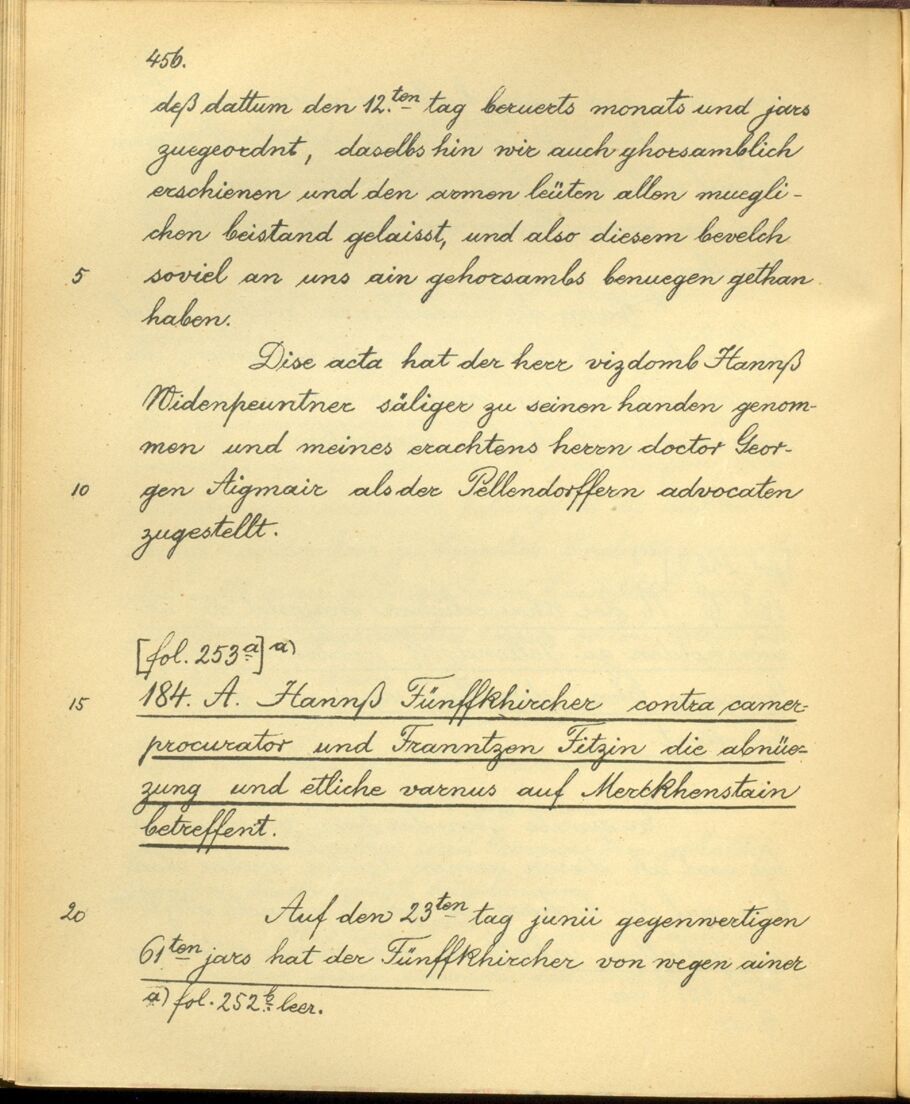 456.
deß dattum den 12.ten tag beruerts monats und jars
zuegeordnt, daselbs hin wir auch ghorsamblich
erschienen und den armen leüten allen muegli-
chen beistand gelaisst, und also diesem bevelch
5 soviel an uns ain gehorsambs benuegen gethan
haben.
Dise acta hat der herr vizdomb Hannß
Widenpeuntner säliger zu seinen handen genom-
men und meines erachtens herrn doctor Geor-
10 gen Aigmair als der Pellendorffern advocaten
zugestellt.
[fol. 253a] a)
15 184. A. Hannß Fünffkhircher contra camer-
procurator und Franntzen Fitzin die abnüe-
zung und etliche varnus auf Merckhenstain
betreffent.
20 Auf den 23ten tag junii gegenwertigen
61ten jars hat der Fünffkhircher von wegen ainer
a) fol. 252b leer.